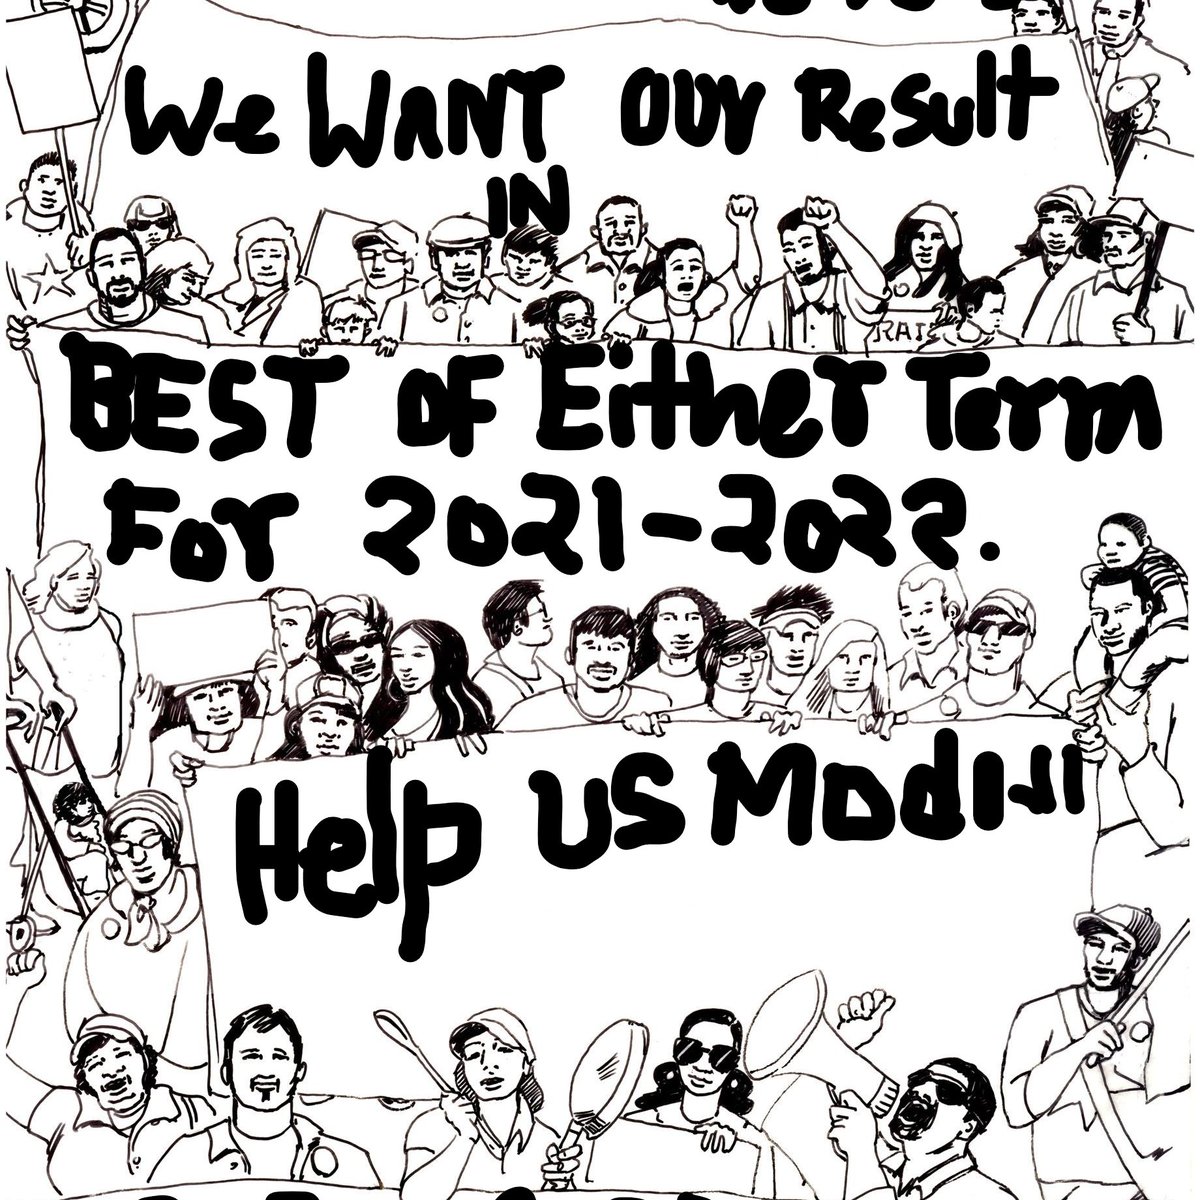 We WANT OUr ResulT
IN
RAI
BEST OF Either Term
For 2021-2022.
Help US Modiji